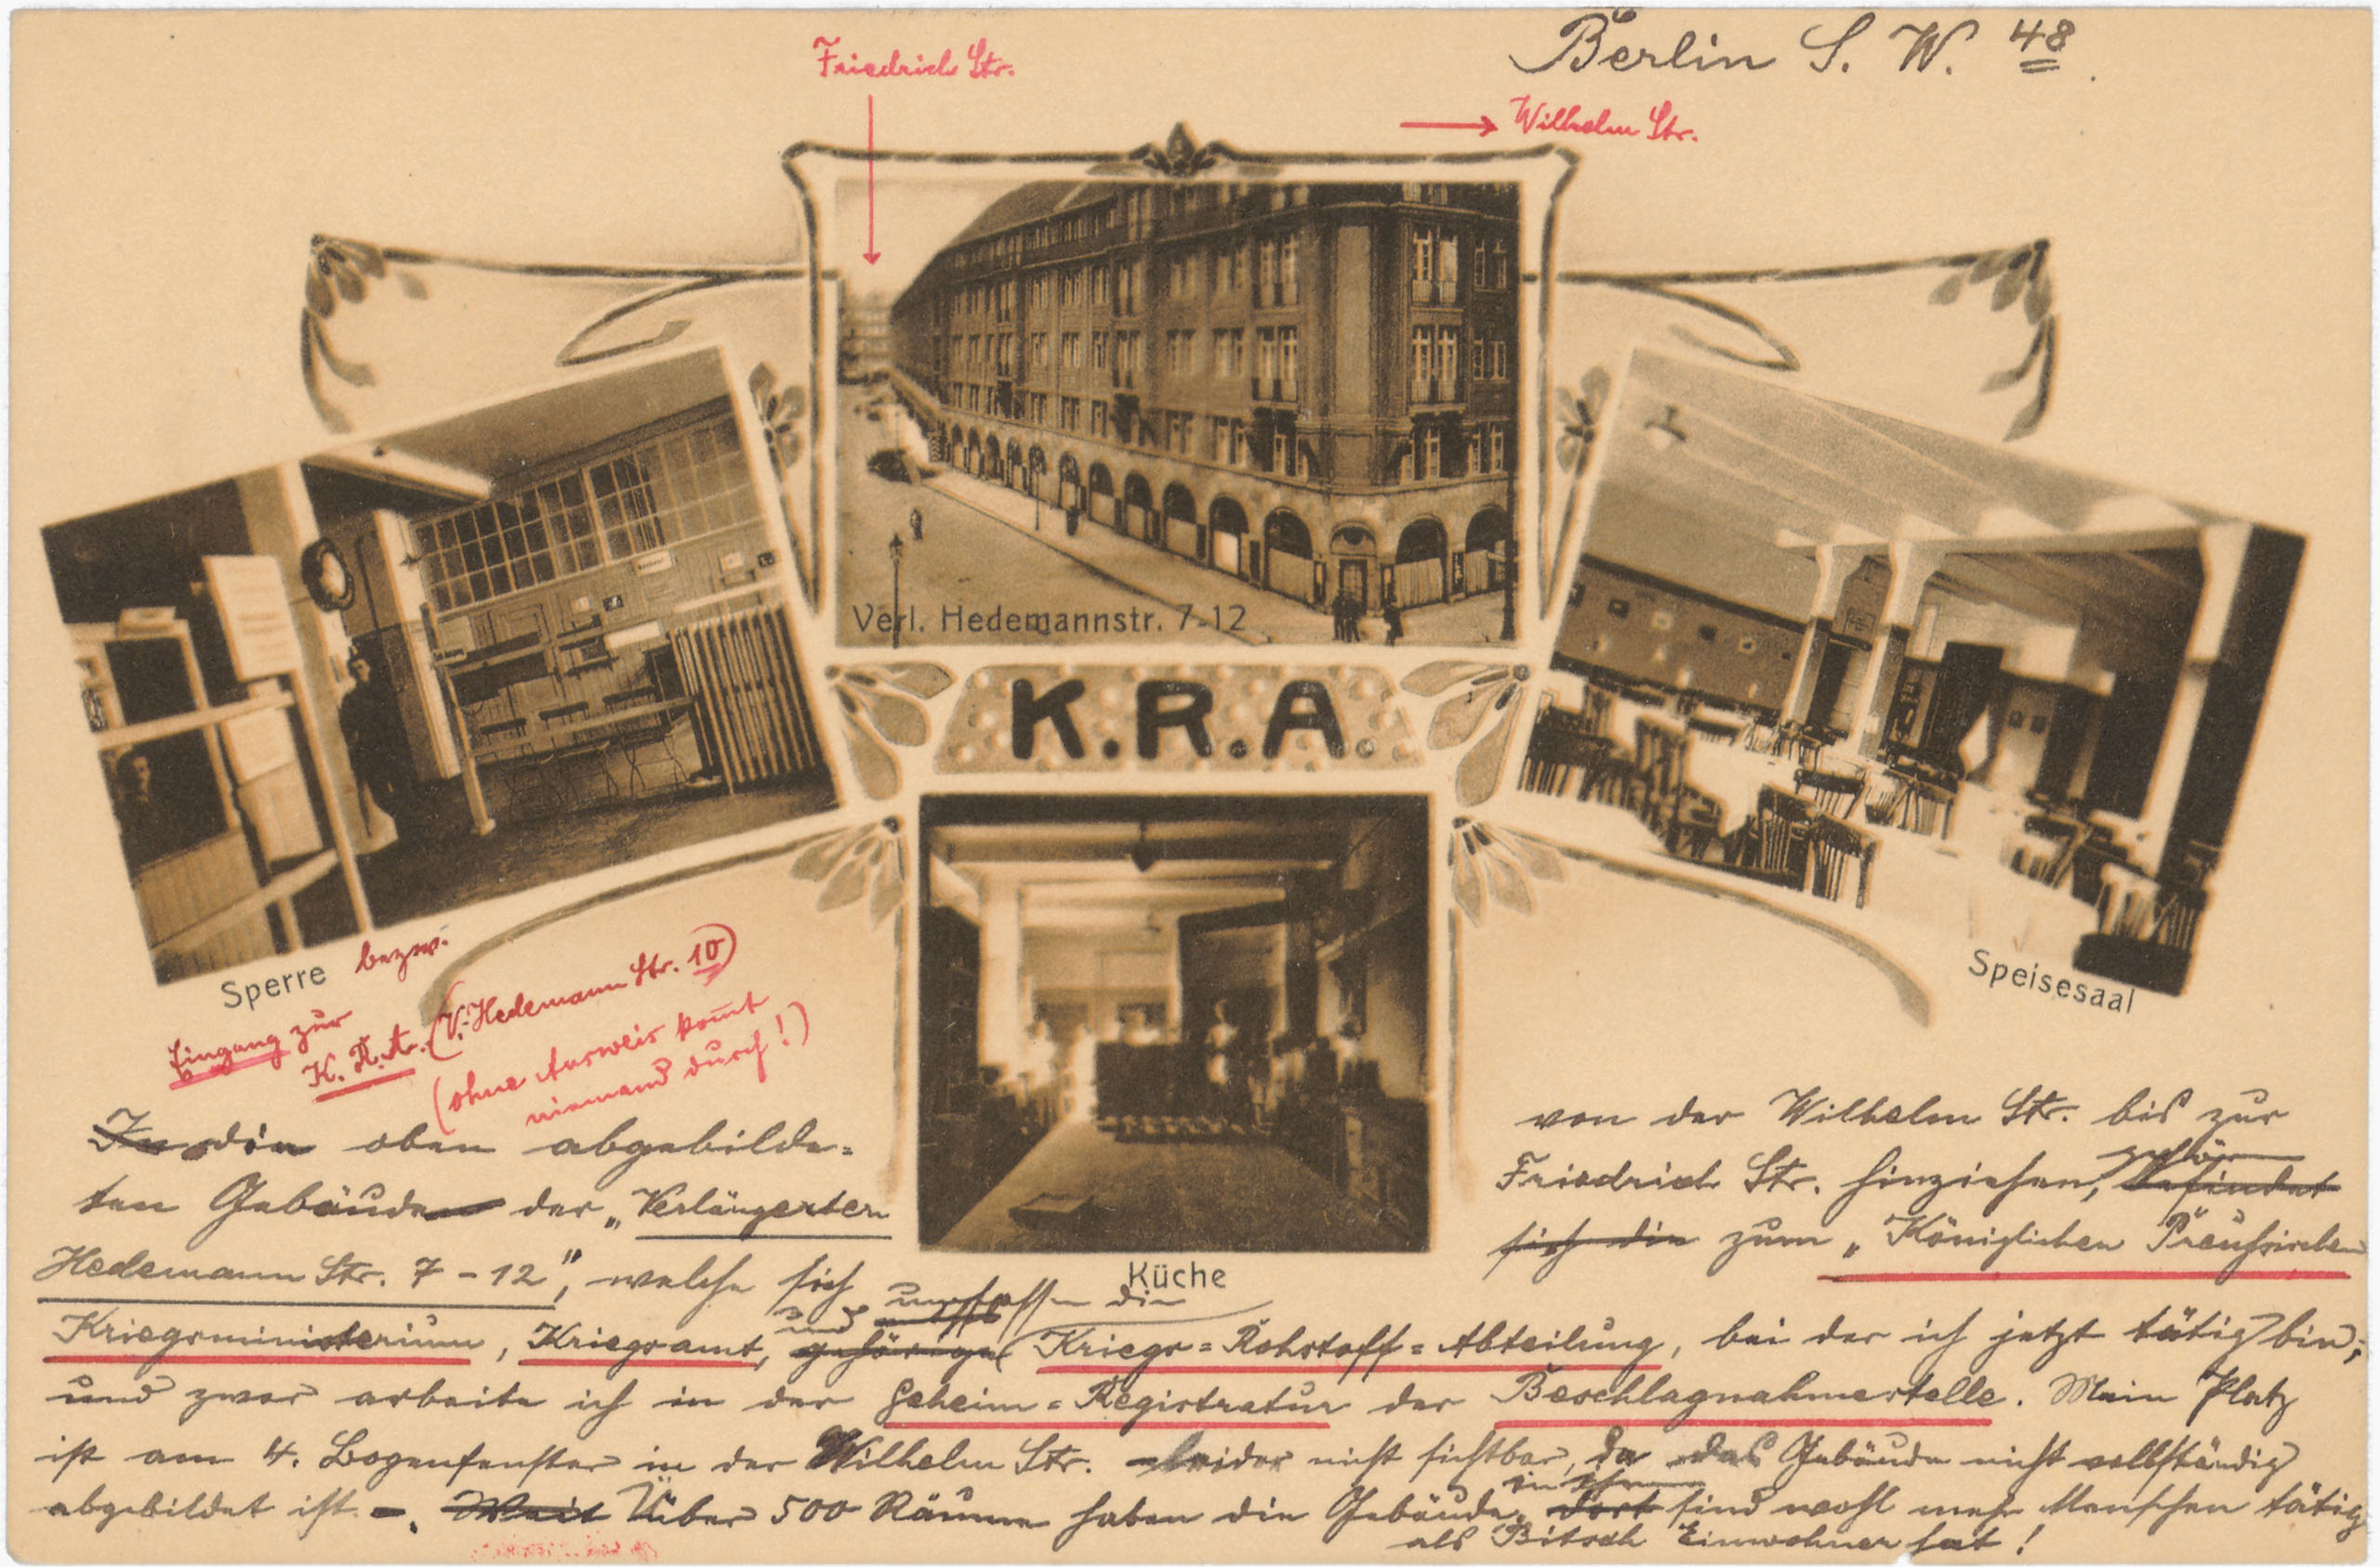 Berlin S. W. 48.
Friedrich Str.
Wilhelm Str.
Verl. Hedemannstr. 7-12
K.R.A.
Sperre bezw.
Eingang zur
K. R. A. (V. Hedemann Str. 10)
(ohne Ausweis kommt
niemand durch!)
Speisesaal
Küche
In die oben abgebilde=
ten Gebäude der „Verlängerten
Hedemann Str. 7-12", welche sich
von der Wilhelm Str. bis zur
Friedrich Str. hinziehen, gehören befindet
sich die zum „Königlichen Preußischen
Kriegsministerium, Kriegsamt, und gehörige umfassen die Kriegs=Rohstoff=Abteilung, bei der ich jetzt tätig bin;
und zwar arbeite ich in der Geheim=Registratur der Beschlagnahmestelle. Mein Platz
ist am 4. Bogenfenster in der Wilhelm Str. - leider nicht sichtbar, da das Gebäude nicht vollständig
abgebildet ist. -. Weit Über 500 Räume haben die Gebäude. in ihnen dort sind wohl mehr Menschen tätig
als Bitsch Einwohner hat!